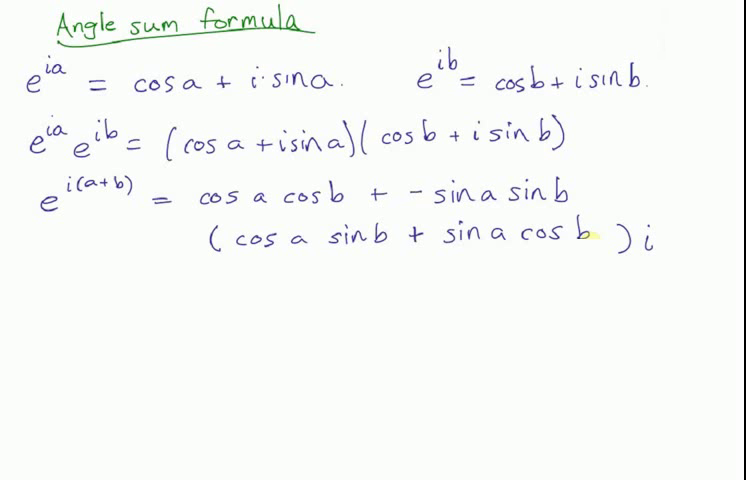 Angle sum formula
e^{ia} = cos a + i·sin a. e^{ib} = cos b + i sin b.
e^{ia} e^{ib} = (cos a + i sin a)(cos b + i sin b)
e^{i(a+b)} = cos a cos b + - sin a sin b
(cos a sin b + sin a cos b ) i